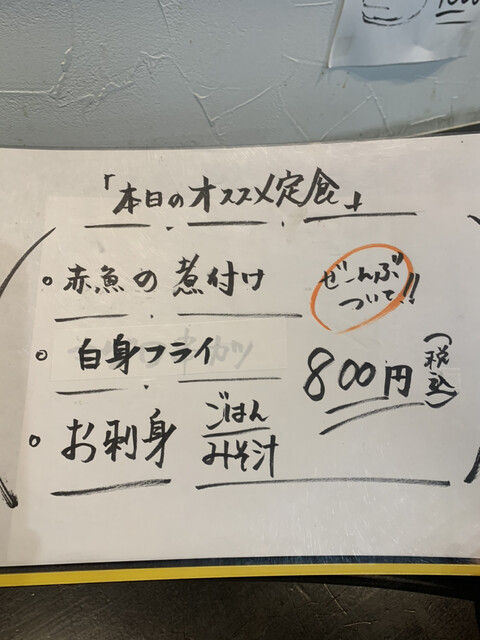 「本日のオススメ定食」
・赤魚の煮付け
ぜーんぶ
ついて!!
・白身フライ
800円(税込)
・お刺身
ごはん
みそ汁